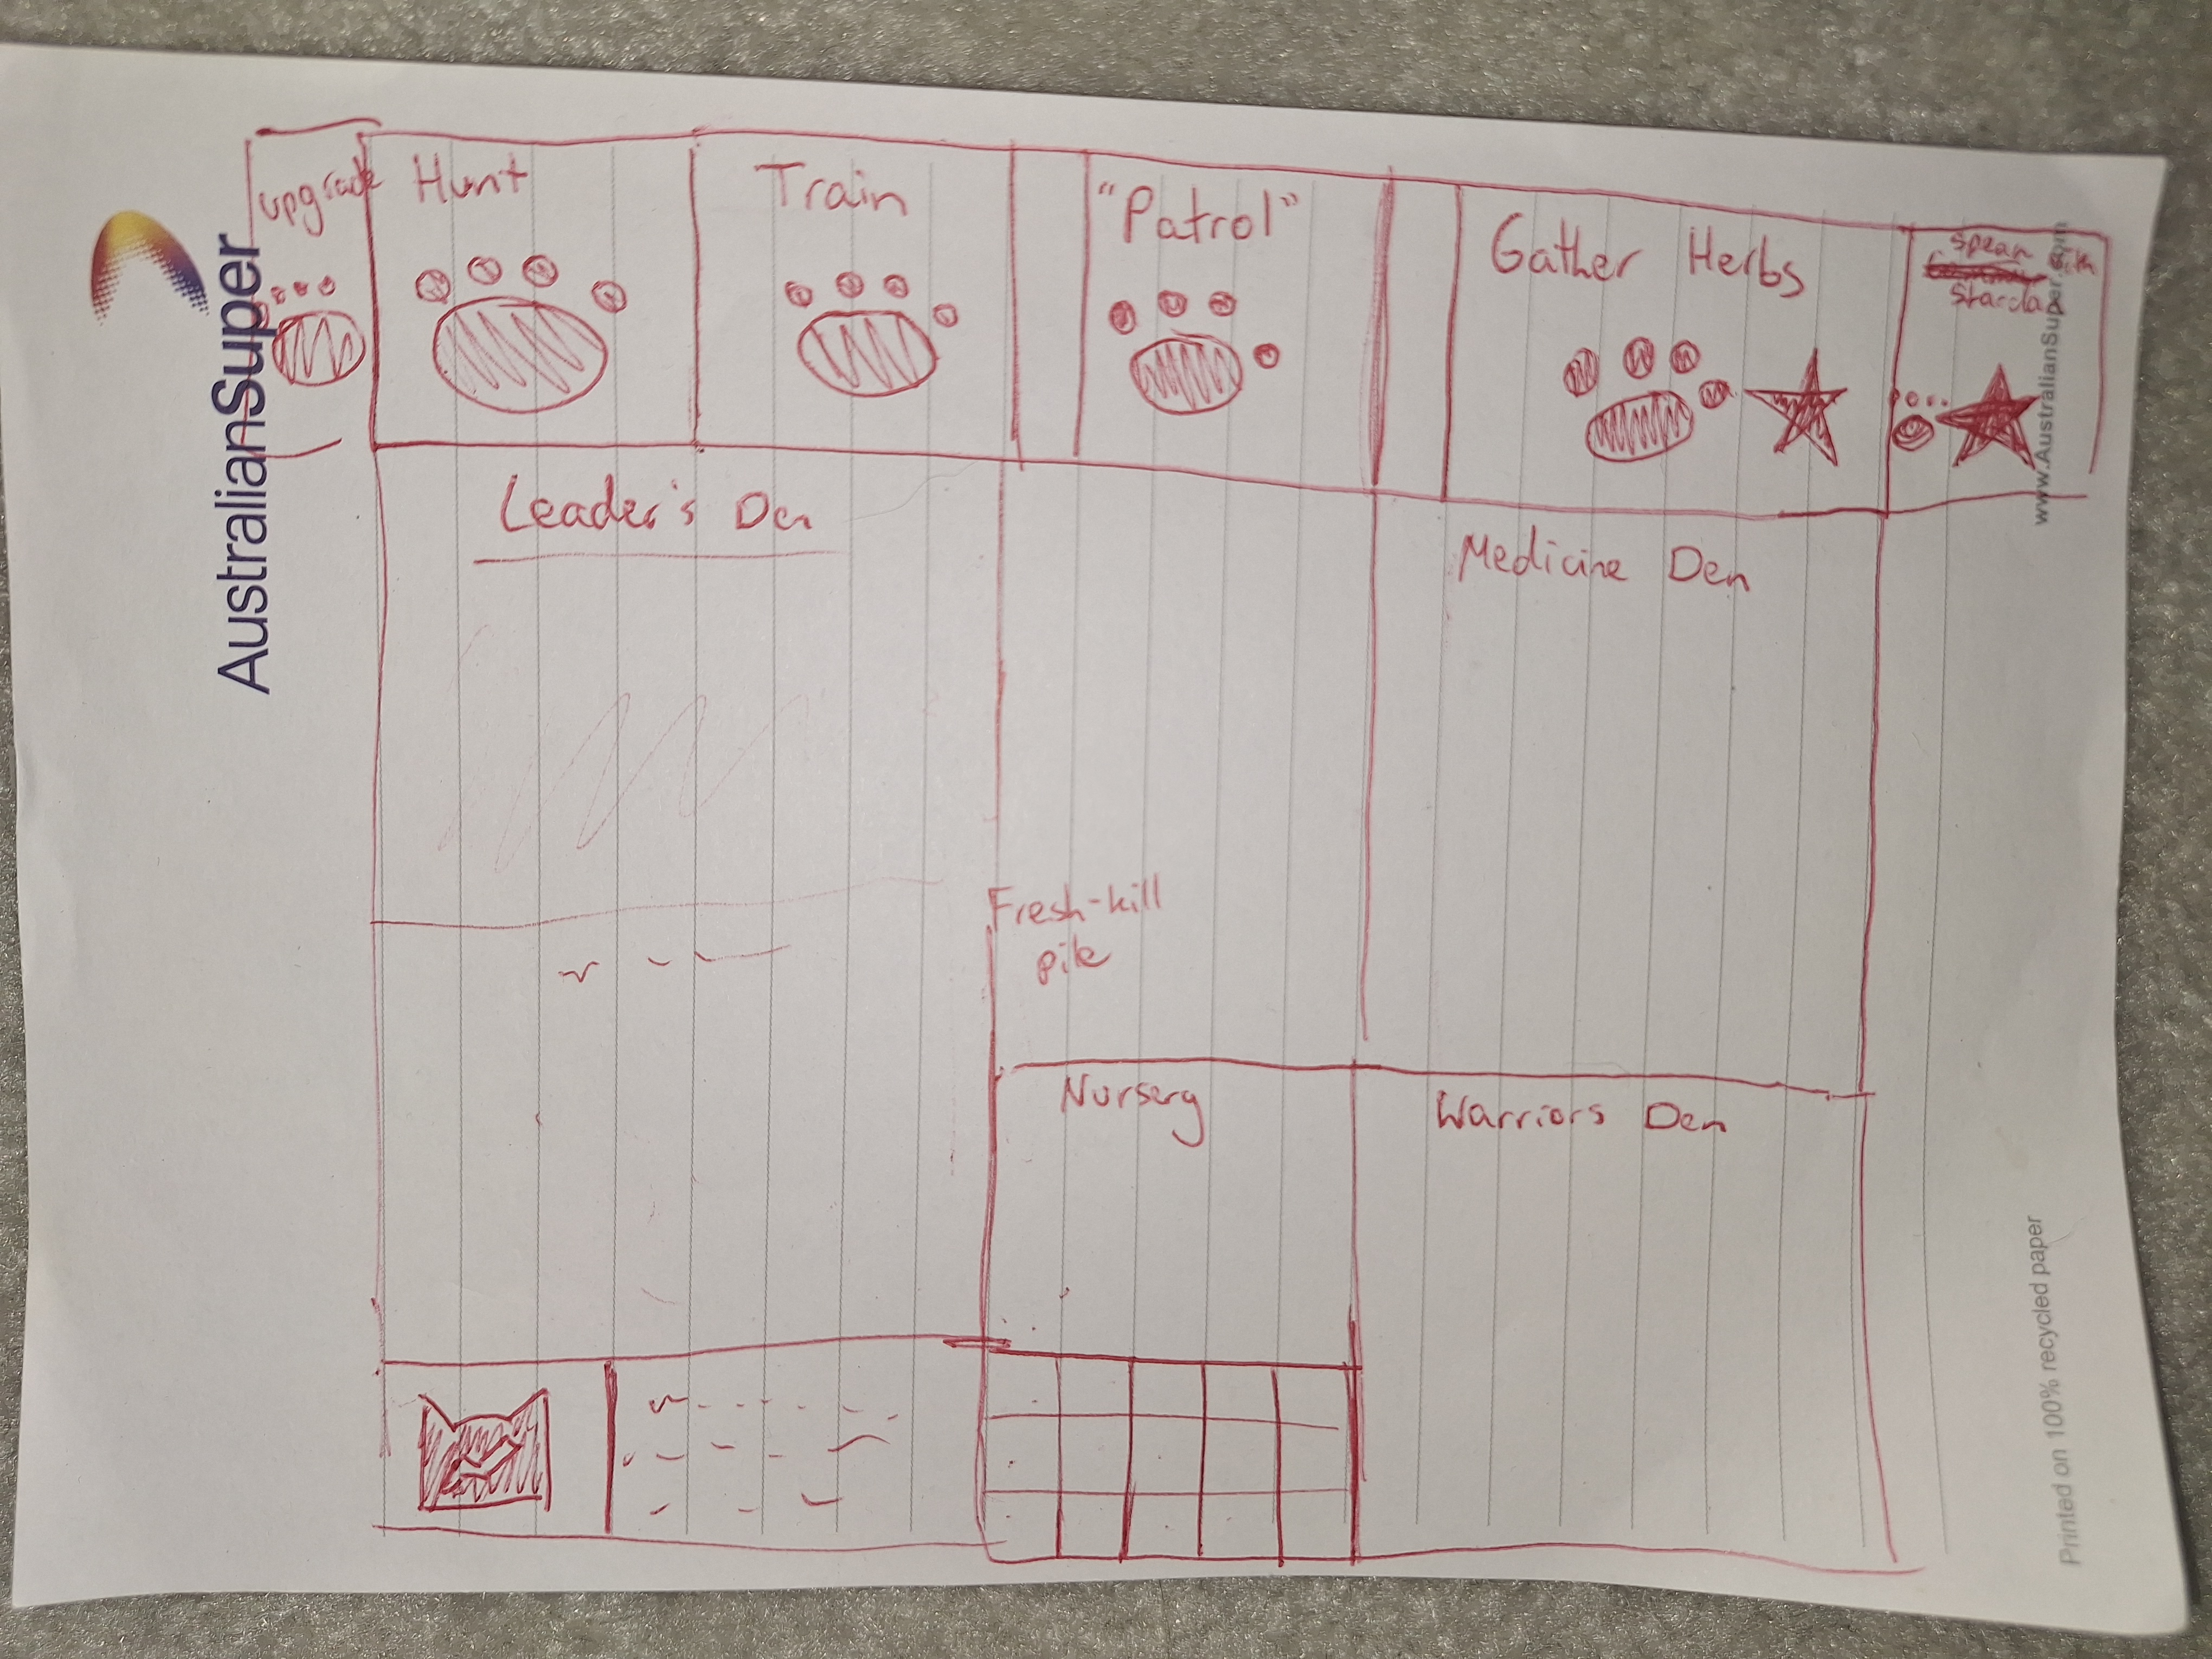 upgrade
Hunt
Train
"Patrol"
Gather Herbs
spean
with
Starclan
Leader's Den
Medicine Den
Fresh-kill
pile
Nursery
Warriors Den
AustralianSuper
www.AustralianSuper.com
Printed on 100% recycled paper